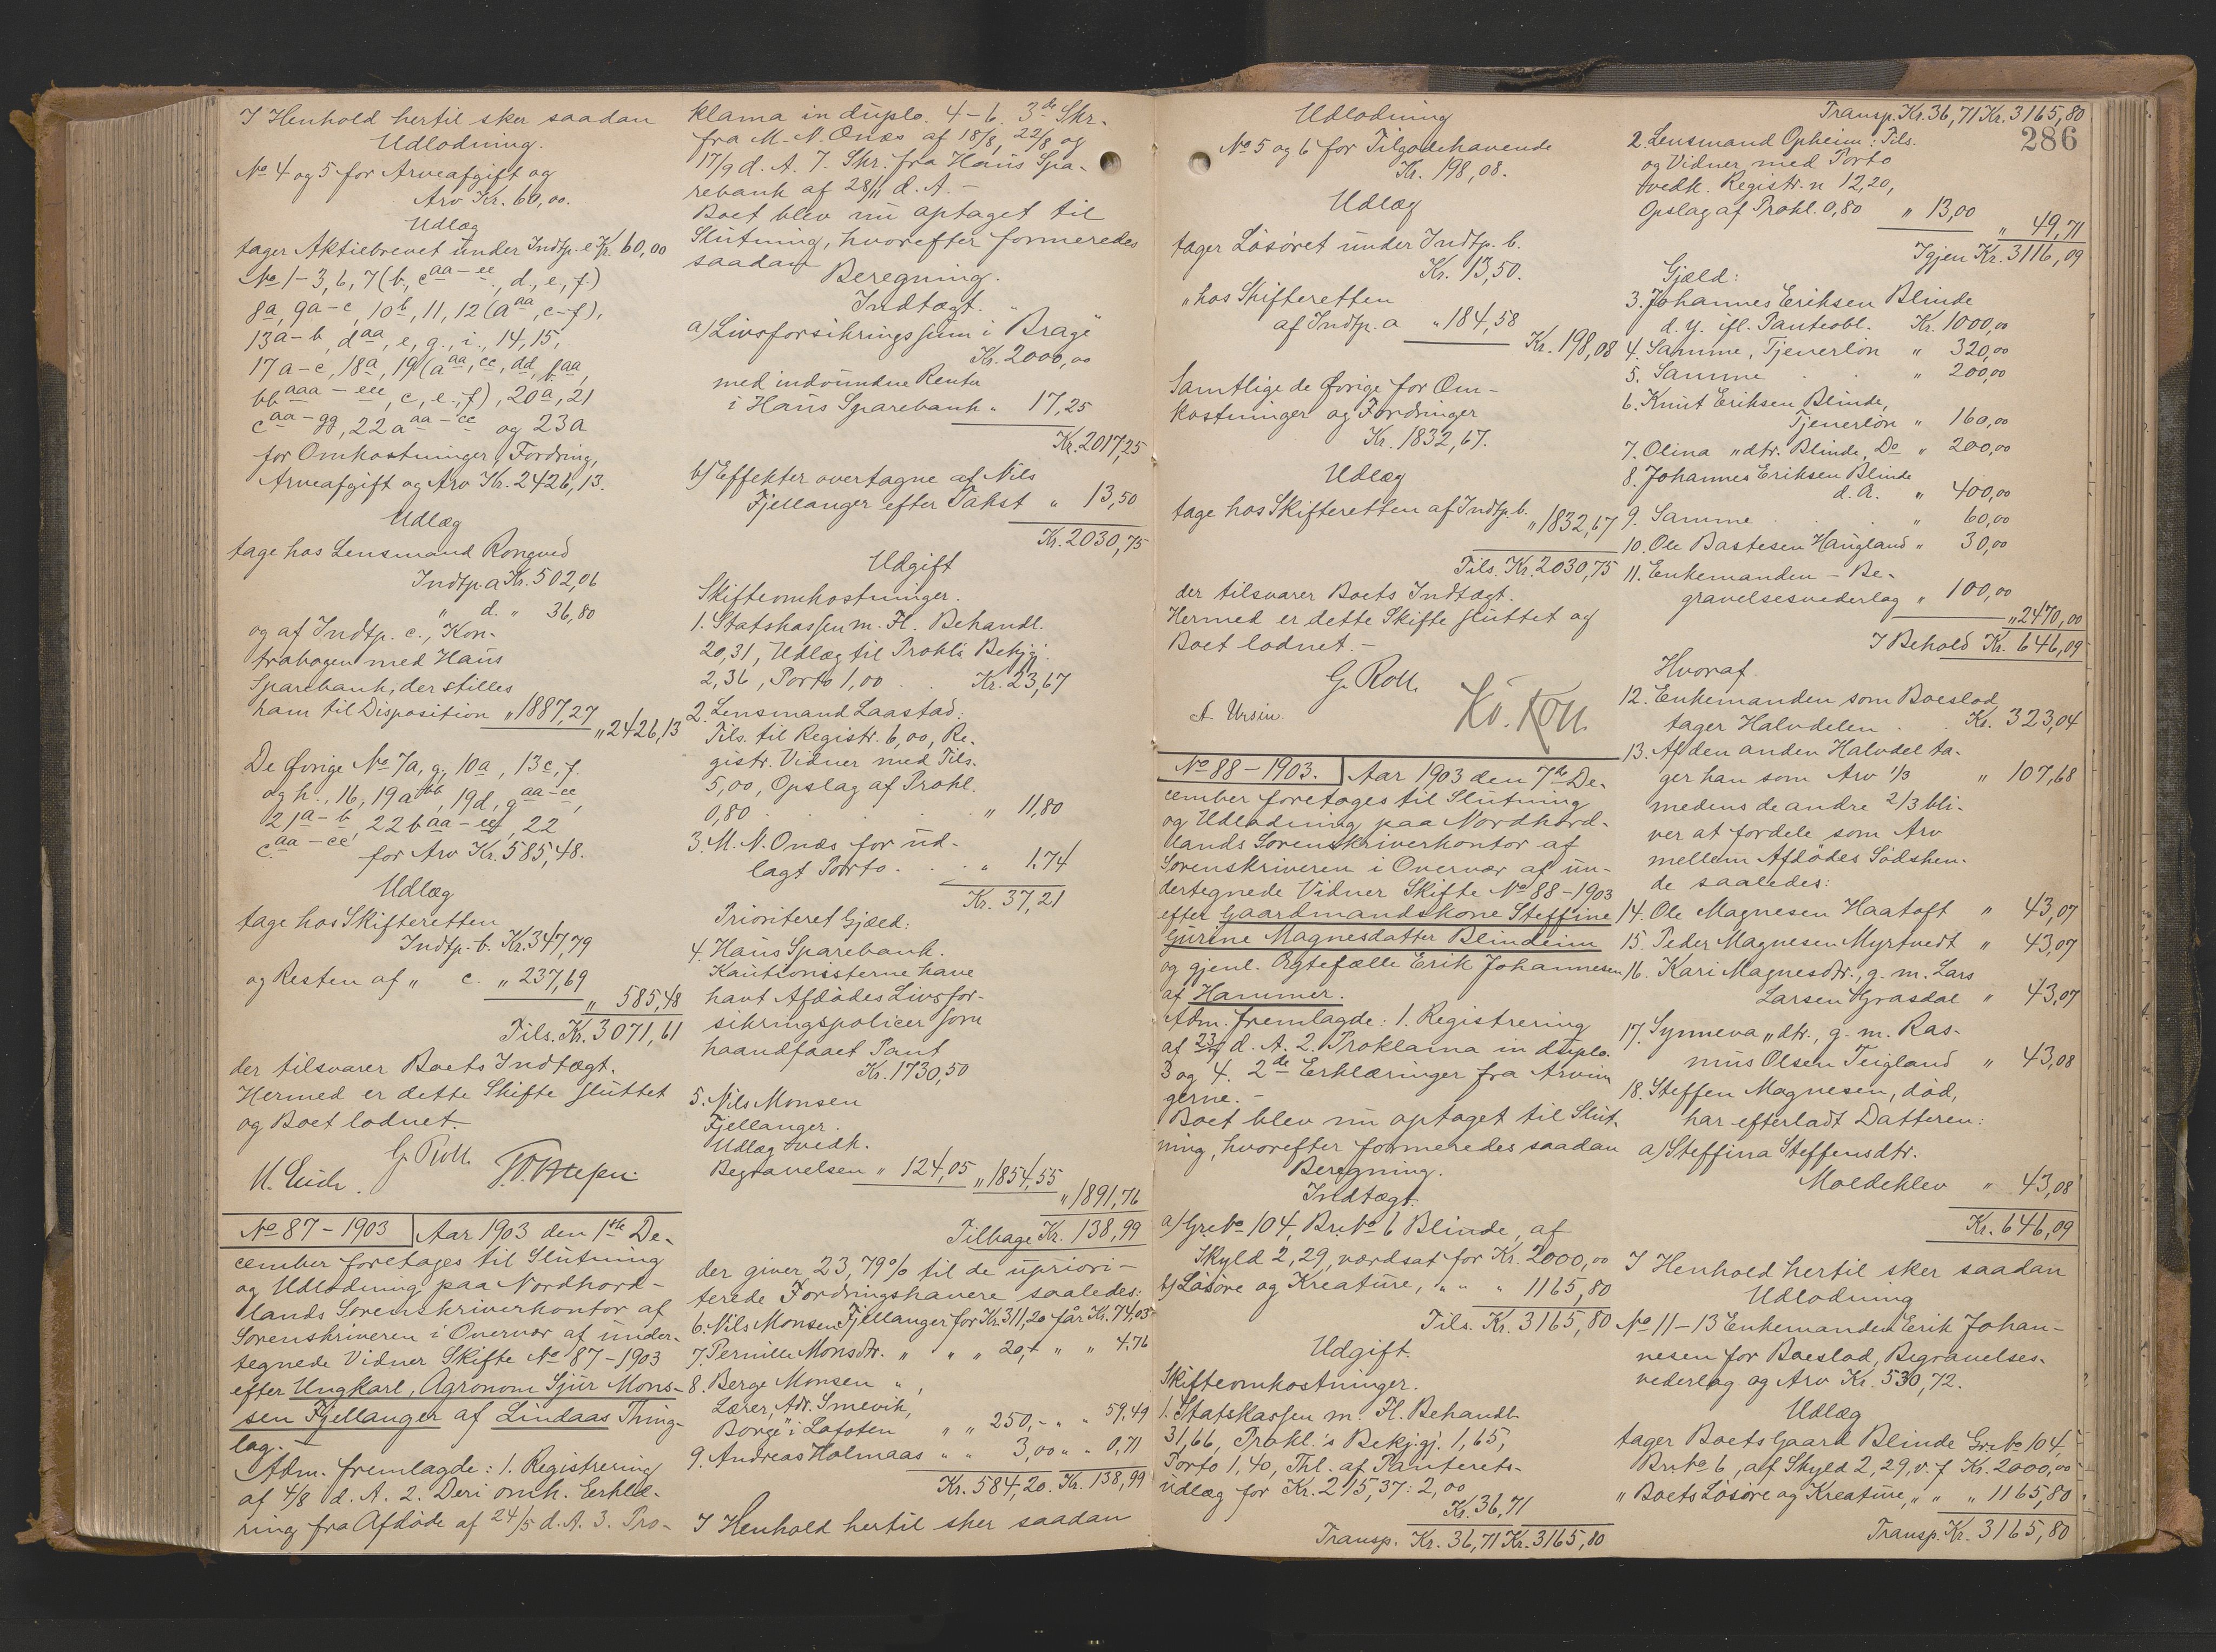 I Henhold hertil sker saadan
Udlodning.
No 4 og 5 for Arveafgift og
Arv Kr. 60,00.
Udlæg
tager Aktiebrevet under Indtp. e Kr. 60,00
No 1-3, 6, 7 (b, c aa-ee, d, e, f)
8a, 9a-c, 10b, 11, 12 (a aa, c-f),
13a-b, d aa, e, g, i, 14, 15,
17a-c, 18a, 19 (a aa, cc, dd, b aa,
bb aaa-eee, c, e, f), 20a, 21
c aa-gg, 22a aa-cc og 23a
for Omkostninger, Fordring,
Arveafgift og Arv Kr. 2426,13.
Udlæg
tage hos Lensmand Rongved
Indtp. a Kr. 502,06
" d. " 36,80
og af Indtp. c., Kon-
trabogen med Haus
Sparebank, der stilles
ham til Disposition " 1887,27
" 2426,13
De Øvrige No 7a, g, 10a, 13c, f.
og h., 16, 19a bb, 19d, g aa-ee,
21a-b, 22b aa-ee, 22
c aa-ee for Arv Kr. 585,48.
Udlæg
tage hos Skifteretten
Indtp. b. Kr. 347,79
og Resten af " c. " 237,69
" 585,48
Tils. Kr. 3071,61
der tilsvarer Boets Indtægt.
Hermed er dette Skifte sluttet
og Boet lodnet.
G. Roll.
No 87-1903 Aar 1903 den 1ste De-
cember foretoges til Slutning
og Udlodning paa Nordhord-
lands Sorenskriverkontor af
Sorenskriveren i Overvær af under-
tegnede Vidner Skifte No 87-1903
efter Ungkarl, Agronom Sjur Mons-
sen Fjellanger af Lindaas Thing-
lag.
Adm. fremlagde: 1. Registrering
af 4/8 d. A. 2. Deri omh. Erklæ-
ring fra Afdøde af 24/5 d. A. 3. Pro-
klama in duplo. 4-6. 3de Skr.
fra M. N. Onæs af 18/8, 22/8 og
17/9 d. A. 7. Skr. fra Haus Spa-
rebank af 28/11 d. A. -
Boet blev nu optaget til
Slutning, hvorefter formeredes
saadan
Beregning.
Indtægt.
a) Livsforsikringssum i "Brage"
Kr. 2000,00
med indvundne Renter
i Haus Sparebank " 17,25
Kr. 2017,25
b) Effekter overtagne af Nils
Fjellanger efter Takst " 13,50
Kr. 2030,75
Udgift
Skifteomkostninger.
1. Statskassen m. Fl. Behandl.
20,31, Udlæg til Prokl's Bekjgj.
2,36, Porto 1,00 . . Kr. 23,67
2. Lensmand Laastad:
Tils. til Registr. 6,00, Re-
gistr. Vidner med Tils.
5,00, Opslag af Prokl.
0,80 . . . . " 11,80
3. M. N. Onæs for ud-
lagt Porto . . . " 1.74
Kr. 37,21
Prioriteret Gjæld:
4. Haus Sparebank.
Kautionisterne have
havt Afdødes Livsfor-
sikringspolicer som
haandfaaet Pant
Kr. 1730,50
5. Nils Monsen
Fjellanger.
Udlæg vedk.
Begravelsen " 124,05 " 1854,55
" 1891,76
Tilbage Kr. 138,99
der giver 23,79% til de upriori-
terede Fordringshavere saaledes:
6. Nils Monsen Fjellanger for Kr. 311,20 får Kr. 74,03
7. Pernille Monsdtr. " " " 20,- " " 4.76
8. Berge Monsen " ,
Lærer, Adr. Smevik,
"Borge" i Lofoten " " 250,- " " 59,49
9. Andreas Holmaas " " 3,00 " " 0,71
Kr. 584,20. Kr. 138,99
I Henhold hertil sker saadan
Udlodning
No 5 og 6 for Tilgodehavende
Kr. 198,08.
Udlæg
tager Løsøret under Indtp. b.
Kr. 13,50.
" hos Skifteretten
af Indtp. a " 184,58
Kr. 198,08
Samtlige de Øvrige for Om-
kostninger og Fordringer
Kr. 1832,67.
Udlæg
tage hos Skifteretten af Indtp. b.
" 1832,67
Tils. Kr. 2030,75
der tilsvarer Boets Indtægt.
Hermed er dette Skifte sluttet og
Boet lodnet. -
G. Roll.
A. Ursin.
No 88-1903. Aar 1903 den 7de De-
cember foretoges til Slutning
og Udlodning paa Nordhord-
lands Sorenskriverkontor af
Sorenskriveren i Overvær af un-
dertegnede Vidner Skifte No 88-1903
efter Gaardmandskone Steffine
Gurine Magnesdatter Blindeim
og gjenl. Ægtefælle Erik Johannesen
af Hammer.
Adm. fremlagde: 1. Registrering
af 23/9 d. A. 2. Proklama in duplo.
3 og 4. 2de Erklæringer fra Arvin
gerne. -
Boet blev nu optaget til Slut-
ning, hvorefter formeredes saadan
Beregning.
Indtægt.
a) Gr. No 104, Br. No 6 Blinde, af
Skyld 2,29, værdsat for Kr. 2000,00
b) Løsøre og Kreature, " " " 1165,80
Tils. Kr. 3165,80
Udgift.
Skifteomkostninger.
1. Statskassen m. Fl. Behandl.
31,66, Prokl.'s Bekj.gj. 1,65,
Porto 1,40, Thl. af Panterets-
udlæg for Kr. 215,37: 2,00
Kr. 36,71
Transp. Kr. 36,71 Kr. 3165,80
Transp. Kr. 36,71 Kr. 3165,80
286
2. Lensmand Opheim: Tils.
og Vidner med Porto
vedk. Registr. n 12,20,
Opslag af Prokl. 0,80 " 13,00
" 49,71
Igjen Kr. 3116,09
Gjæld:
3. Johannes Eriksen Blinde
d. y. ifl. Panteobl. Kr. 1000,00
4. Samme, Tjenerløn " 320,00
5. Samme . . " 200,00
6. Knut Eriksen Blinde,
Tjenerløn " 160,00
7. Olina " dtr. Blinde, Do " 200,00
8. Johannes Eriksen Blinde
d. A. " 400,00
9. Samme . . " 60,00
10. Ole Bastesen Haugland " 30,00
11. Enkemanden - Be-
gravelsesvederlag " 100,00
" 2470,00
I Behold Kr. 646,09
Hvoraf
12. Enkemanden som Boeslod
tager Halvdelen . Kr. 323,04
13. Af den anden Halvdel ta-
ger han som Arv 1/3 " 107,68
medens de andre 2/3 bli-
ver at fordele som Arv
mellem Afdødes Sødsken-
de saaledes:
14. Ole Magnesen Haatoft " 43,07
15. Peder Magnesen Myrtvedt " 43,07
16. Kari Magnesdtr., g. m. Lars
Larsen Grasdal " 43,07
17. Synneva " dtr., g. m. Ras-
mus Olsen Teigland " 43,08
18. Steffen Magnesen, død,
har efterladt Datteren:
a) Steffina Steffensdtr.
Moldeklev " 43,08
Kr. 646,09
I Henhold hertil sker saadan
Udlodning
No 11-13 Enkemanden Erik Johan-
nesen for Boeslod, Begravelses-
vederlag og Arv Kr. 530,72.
Udlæg
tager Boets Gaard Blinde Gr. No 104,
Br. No 6, af Skyld 2,29, v. f. Kr. 2000,00
" Boets Løsøre og Kreature, " " " 1165,80
Transp. Kr. 3165,80